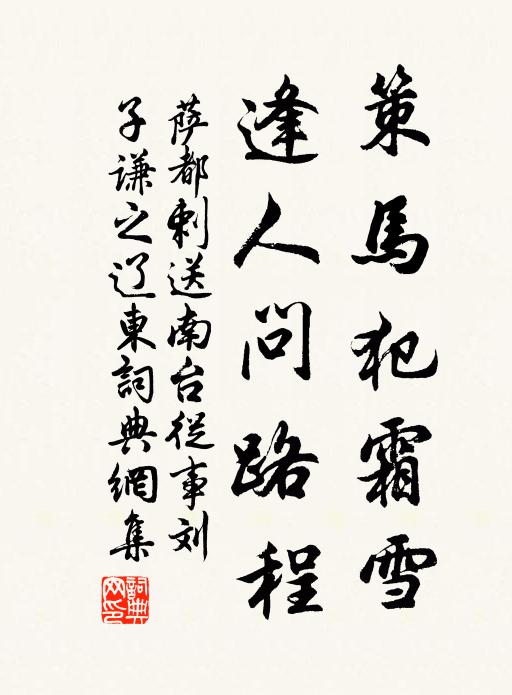 策馬犯霜雪
逢人問路程
萨都剌送南台從事刘
子谦之辽東詞典網集
詞典网印